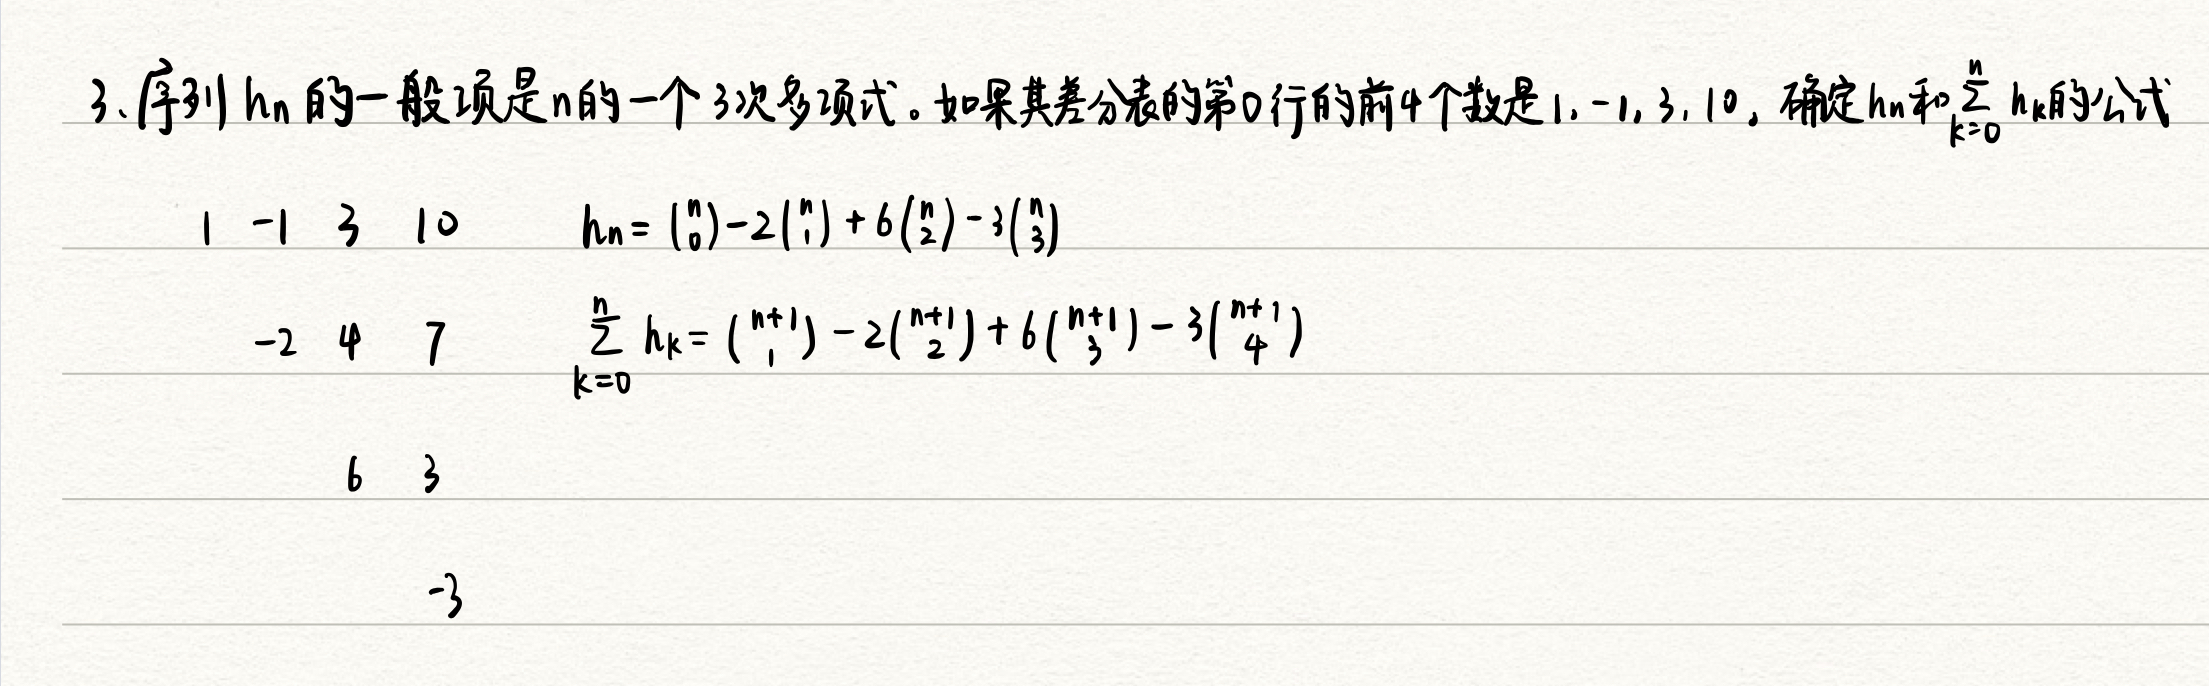 3、序列 hn 的一般项是n的一个3次多项式。如果其差分表的第0行的前4个数是1, -1, 3, 10, 确定hn和∑_{k=0}^{n} hk的公式
1 -1 3 10 hn = (n 0) - 2(n 1) + 6(n 2) - 3(n 3)
-2 4 7 ∑_{k=0}^{n} hk = (n+1 1) - 2(n+1 2) + 6(n+1 3) - 3(n+1 4)
6 3
-3